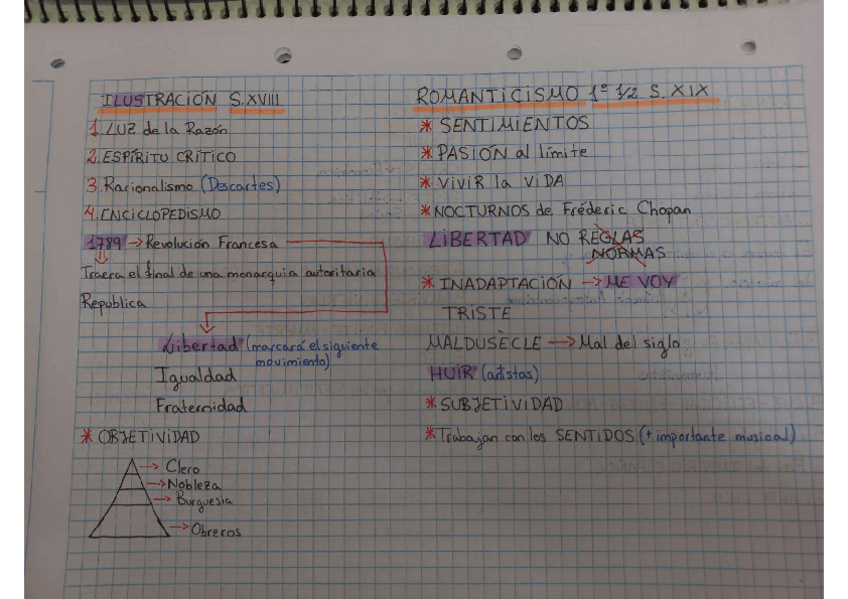 ILUSTRACIÓN S.XVIII
1. LUZ de la Razón
2. ESPÍRITU CRÍTICO
3. Racionalismo (Descartes)
4. ENCICLOPEDISMO
1789 → Revolución Francesa
Traera el final de una monarquia autoritaria
Republica
Libertad (marcará el siguiente
movimiento)
Igualdad
Fraternidad
* OBJETIVIDAD
→ Clero
→ Nobleza
→ Burguesia
→ Obreros
ROMANTICISMO 1º 1/2 S. XIX
* SENTIMIENTOS
* PASIÓN al límite
* VIVIR la VIDA
* NOCTURNOS de Fréderic Chopan
LIBERTAD NO REGLAS
NORMAS
* INADAPTACIÓN → ME VOY
TRISTE
MALDUSÈCLE → Mal del siglo
HUIR (artistas)
* SUBJETIVIDAD
* Trabajan con los SENTIDOS (+ importante musical)